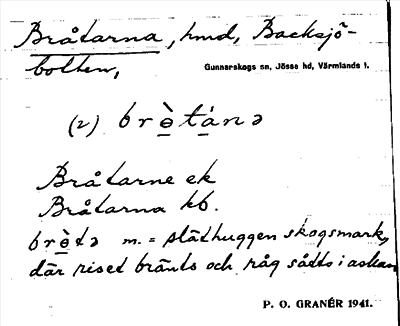 Bråtarna, hmd, Backsjö-
bolten,
Gunnarskogs sn, Jösse hd, Värmlands l.
(2) brètánə
Bråtarne ek
Bråtarna kb.
brètə m. = släthuggen skogsmark,
där riset bränts och råg sådts i askan
P. O. GRANÉR 1941.